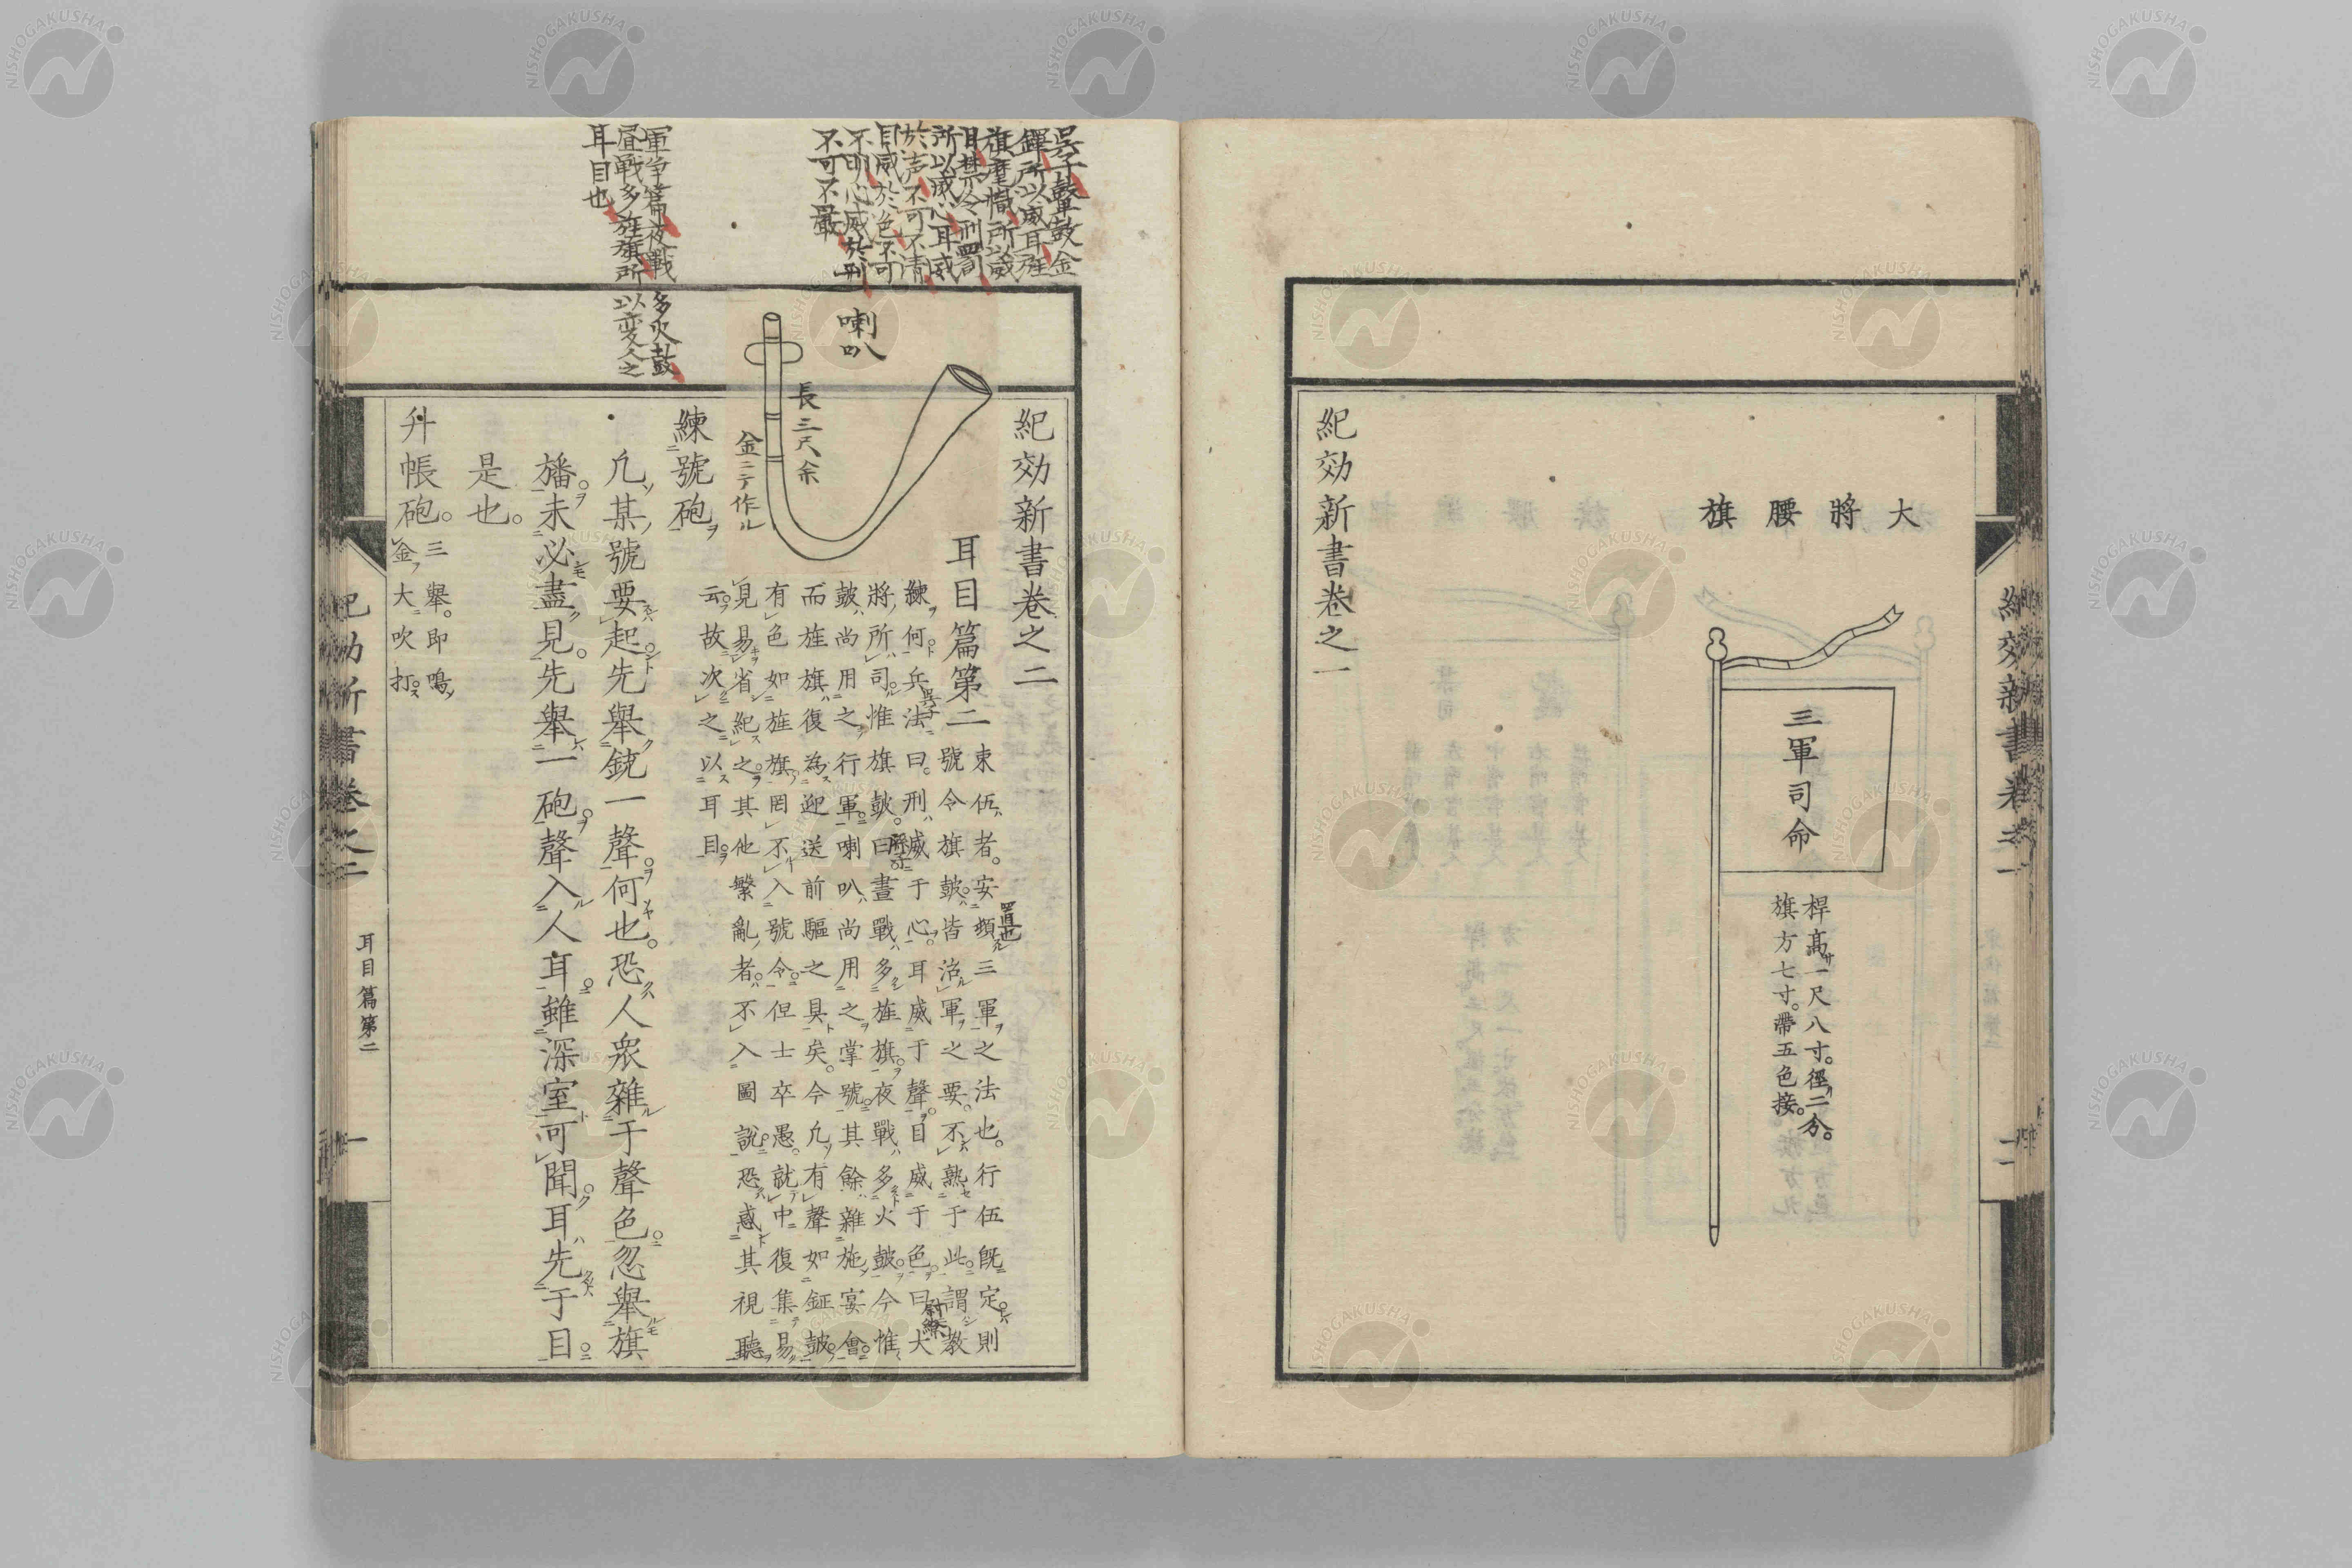 大將腰旗
三軍司命
桿高一尺八寸。徑二分。
旗方七寸。帶五色接。
紀効新書卷之一
紀効新書卷之一
呉子鼙鼓金
鐸所以威耳旌
旗麾幟所以威
目禁令刑罰
所以威心耳威
於声不可不清
目威於色不可
不明心威於刑
不可不嚴
軍争篇夜戰多火鼓
昼戰多旌旗所以変人之
耳目也
喇叭
長三尺余
金ニテ作ル
紀効新書卷之二
耳目篇第二
束伍者。安頓三軍之法也。行伍既定則
號令旗皷。皆治軍之要。不熟于此。謂教
練何。兵法曰。刑威于心。耳威于聲。目威于色。曰大
將所司惟旗皷。曰晝戰多旌旗。夜戰多火皷。今惟
皷尚用之行軍。喇叭尚用之掌號。其餘雜施宴會。
而旌旗復為迎送前驅之具矣。今凡有聲如鉦皷。
有色如旌旗。罔不入號令。但士卒愚。就中復集易
見易省紀之。其他繁亂者。不入圖說。恐惑其視聽
云。故次之以耳目。
呉子
尉繚
置也
練號砲
凡某號要起。先舉銃一聲。何也。恐人衆雜于聲色。忽舉旗
旛。未必盡見。先舉一砲。聲入人耳。雖深室可聞。耳先于目。
是也。
升帳砲。
三舉。即鳴
金大吹打。
紀効新書卷之二
耳目篇第二
一